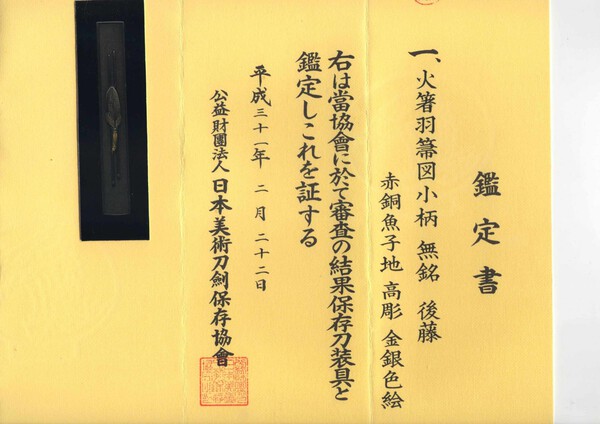 鑑定書
一、火箸羽箒図小柄 無銘 後藤
赤銅魚子地 高彫 金銀色絵
右は當協會に於て審査の結果保存刀装具と
鑑定しこれを証する
平成三十一年 二月 二十二日
公益財團法人 日本美術刀劍保存協會